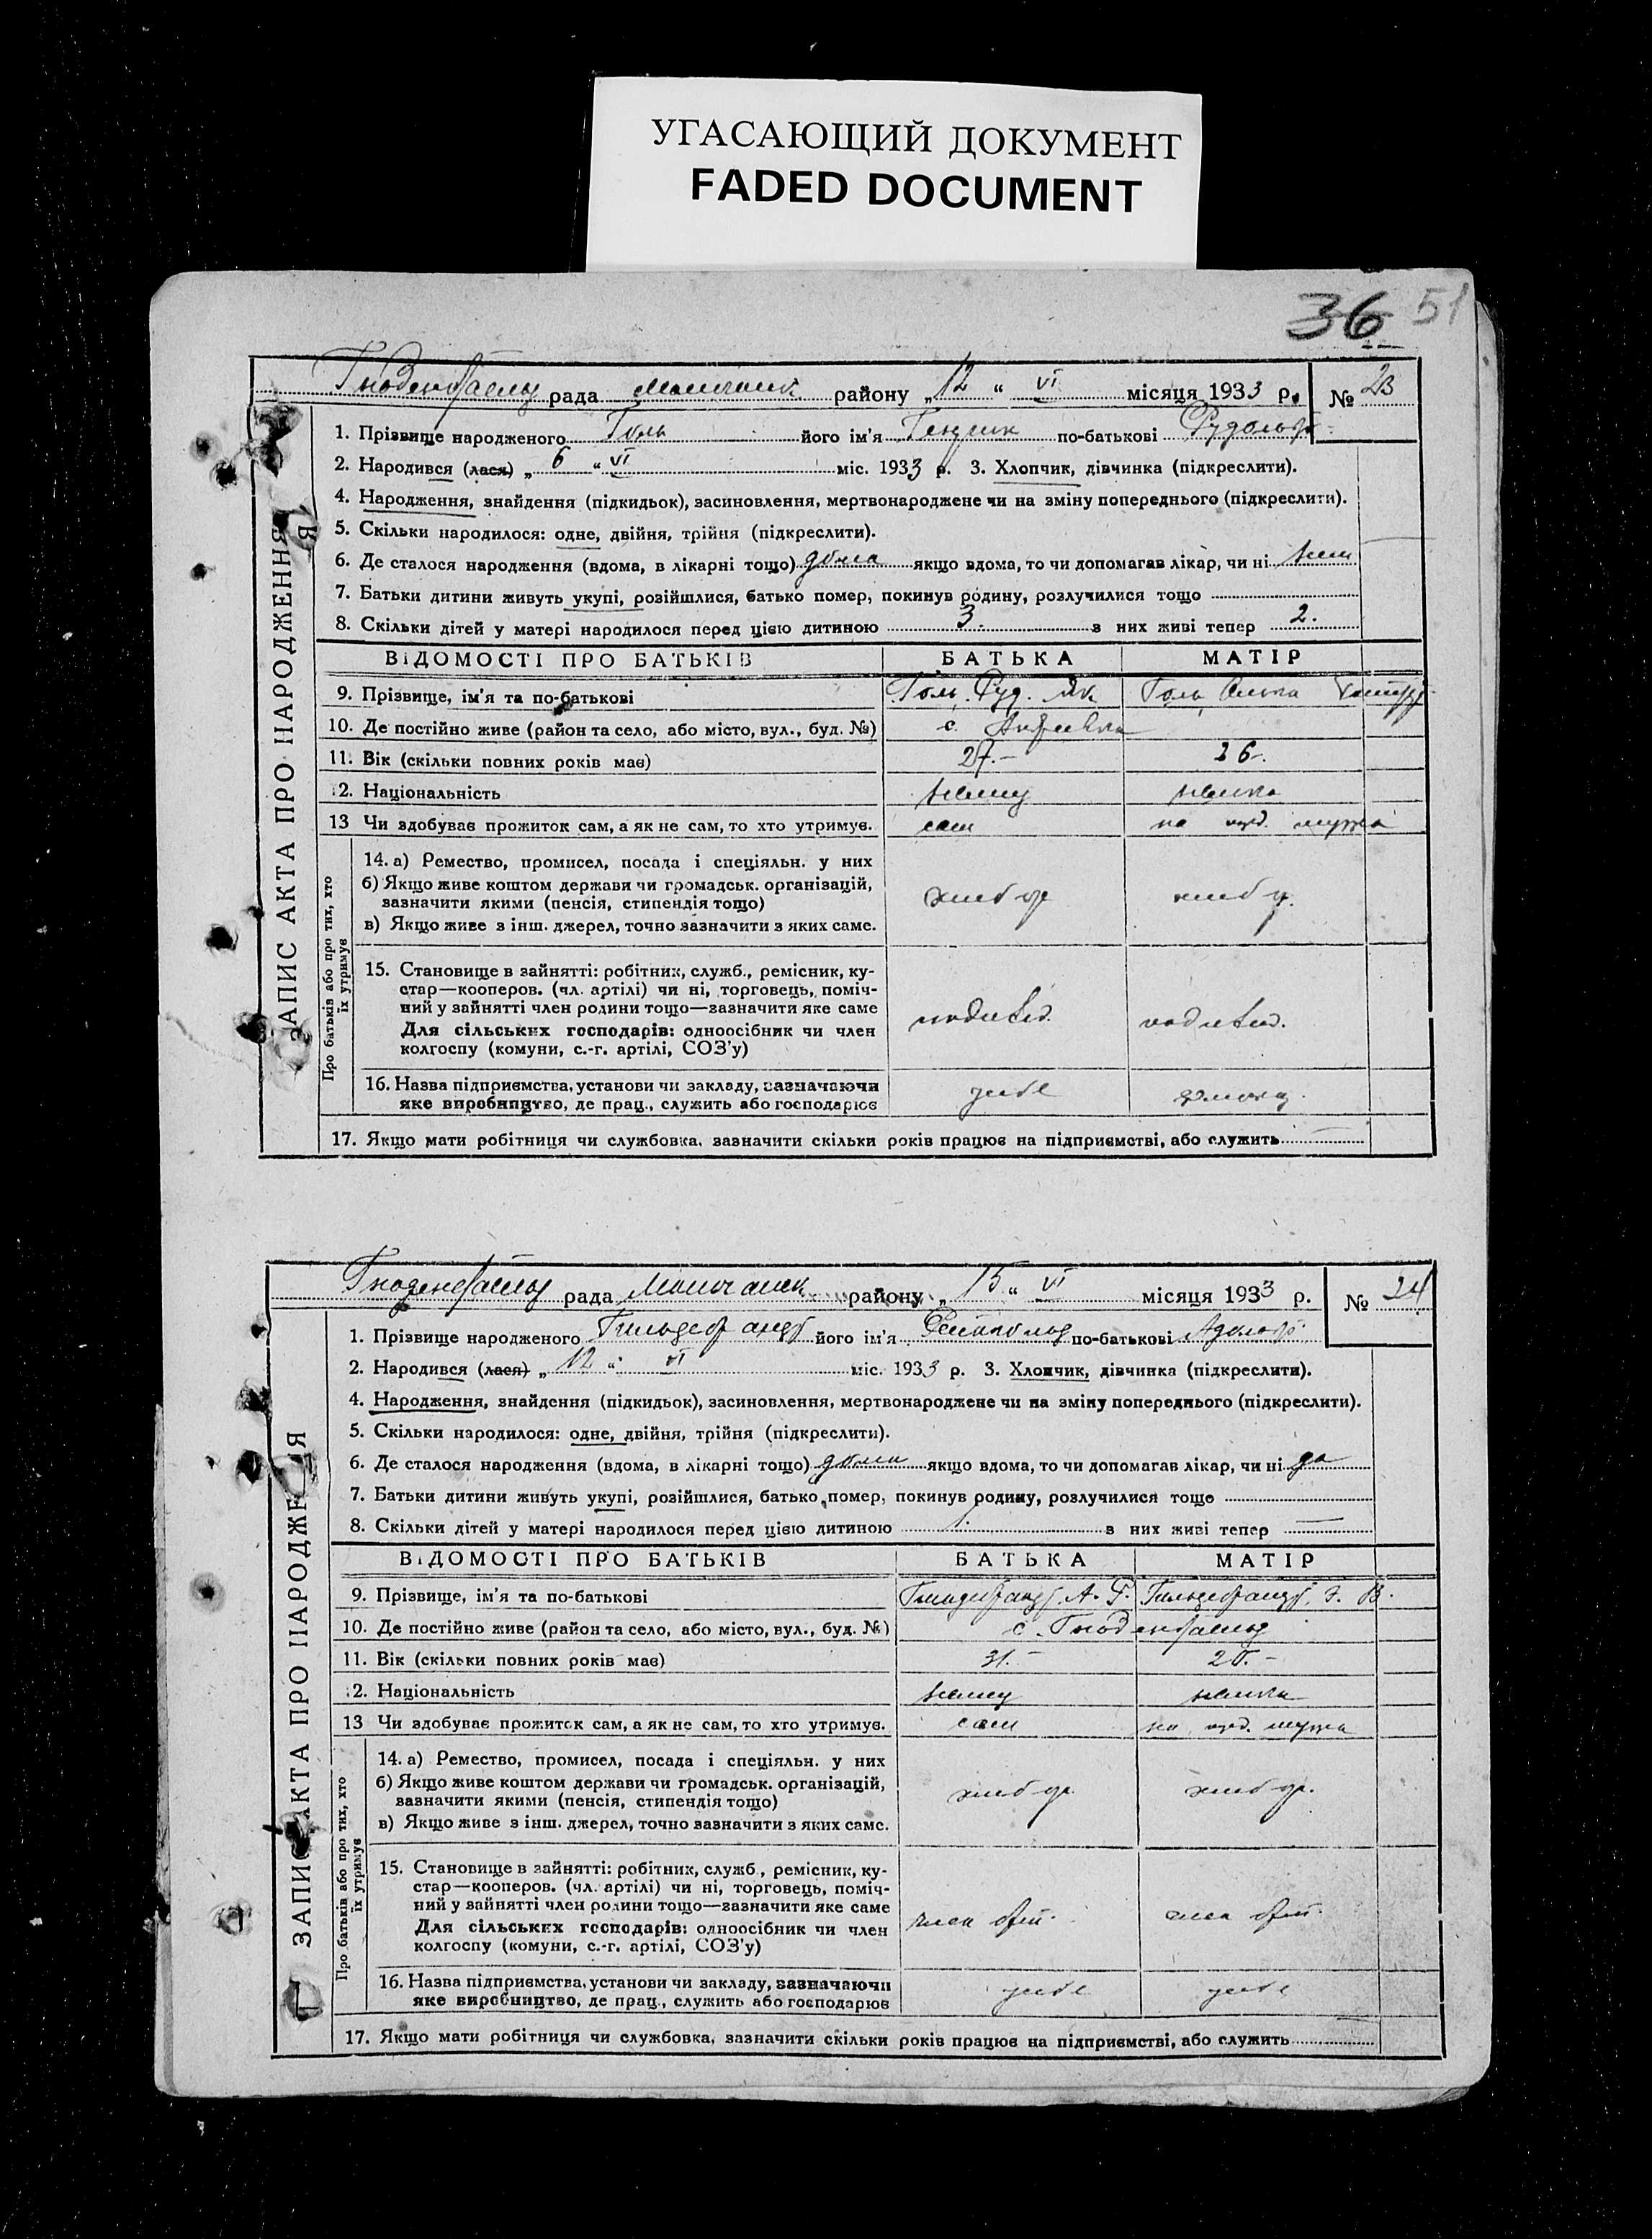 УГАСАЮЩИЙ ДОКУМЕНТ
FADED DOCUMENT
36 51
рада район у „12 “ VI місяця 1933 р. № 23
1. Прізвище народженого Голь його ім'я Генрик по-батькові Рудольф
2. Народився (лася) „ 6 “ VI міс. 1933 р. 3. Хлопчик, дівчинка (підкреслити).
4. Народження, знайдення (підкидьок), засиновлення, мертвонароджене чи на зміну попереднього (підкреслити).
5. Скільки народилося: одне, двійня, трійня (підкреслити).
6. Де сталося народження (вдома, в лікарні тощо) дома якщо вдома, то чи допомагав лікар, чи ні
7. Батьки дитини живуть укупі, розійшлися, батько помер, покинув родину, розлучилися тощо
8. Скільки дітей у матері народилося перед цією дитиною 3. з них живі тепер 2.
ВІДОМОСТІ ПРО БАТЬКІВ БАТЬКА МАТІР
9. Прізвище, ім'я та по-батькові Голь Руд. Як Голь
10. Де постійно живе (район та село, або місто, вул., буд. №) с.
11. Вік (скільки повних років має) 27. – 26.
12. Національність немец немка
13 Чи здобуває прожиток сам, а як не сам, то хто утримує. сам на ижд. мужа
14. а) Ремество, промисел, посада і спеціяльн. у них
б) Якщо живе коштом держави чи громадськ. організацій,
зазначити якими (пенсія, стипендія тощо)
в) Якщо живе з інш. джерел, точно зазначити з яких саме.
хлебор хлебор.
15. Становище в зайнятті: робітник, служб., ремісник, ку-
стар—кооперов. (чл. артілі) чи ні, торговець, поміч-
ний у зайнятті член родини тощо—зазначити яке саме
Для сільських господарів: одноосібник чи член
колгоспу (комуни, с.-г. артілі, СОЗ'у)
16. Назва підприємства, установи чи закладу, зазначаючи
яке виробництво, де прац., служить або господарює
17. Якщо мати робітниця чи службовка, зазначити скільки років працює на підприємстві, або служить
ЗАПИС АКТА ПРО НАРОДЖЕННЯ
Про батьків або про тих, хто
їх утримує
рада району „ 15 “ VI місяця 1933 р. № 24
1. Прізвище народженого Гильдебрандт його ім'я по-батькові Адольф
2. Народився (лася) „ 12 “ VI міс. 1933 р. 3. Хлопчик, дівчинка (підкреслити).
4. Народження, знайдення (підкидьок), засиновлення, мертвонароджене чи на зміну попереднього (підкреслити).
5. Скільки народилося: одне, двійня, трійня (підкреслити).
6. Де сталося народження (вдома, в лікарні тощо) дома якщо вдома, то чи допомагав лікар, чи ні да
7. Батьки дитини живуть укупі, розійшлися, батько помер, покинув родину, розлучилися тощо
8. Скільки дітей у матері народилося перед цією дитиною 1. з них живі тепер —
ВІДОМОСТІ ПРО БАТЬКІВ БАТЬКА МАТІР
9. Прізвище, ім'я та по-батькові Гильдебрандт. А. Г. Гильдебрандт. Э. В.
10. Де постійно живе (район та село, або місто, вул., буд. №) с. Гнаденфельд
11. Вік (скільки повних років має) 31. –
12. Національність немец немка
13 Чи здобуває прожиток сам, а як не сам, то хто утримує. сам на ижд. мужа
14. а) Ремество, промисел, посада і спеціяльн. у них
б) Якщо живе коштом держави чи громадськ. організацій,
зазначити якими (пенсія, стипендія тощо)
в) Якщо живе з інш. джерел, точно зазначити з яких саме.
хлебор. хлебор.
15. Становище в зайнятті: робітник, служб., ремісник, ку-
стар—кооперов. (чл. артілі) чи ні, торговець, поміч-
ний у зайнятті член родини тощо—зазначити яке саме
Для сільських господарів: одноосібник чи член
колгоспу (комуни, с.-г. артілі, СОЗ'у)
член арт. член арт.
16. Назва підприємства, установи чи закладу, зазначаючи
яке виробництво, де прац., служить або господарює
17. Якщо мати робітниця чи службовка, зазначити скільки років працює на підприємстві, або служить
ЗАПИС АКТА ПРО НАРОДЖЕННЯ
Про батьків або про тих, хто
їх утримує